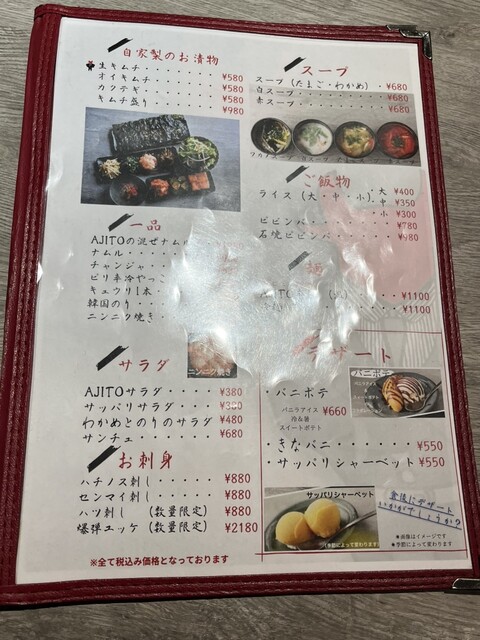 自家製のお漬物
生キムチ・・・・・¥580
オイキムチ・・・・¥580
カクテギ・・・・・¥580
キムチ盛り・・・・¥980
一品
AJITOの混ぜナムル
ナムル・・・・
チャンジャ・・・
ピリ辛冷やっこ
キュウリ1本・・
韓国のり・・・
ニンニク焼き・
ニンニク焼き
サラダ
AJITOサラダ・・・・¥380
サッパリサラダ・・・¥380
わかめとのりのサラダ ¥480
サンチュ・・・・・・¥680
お刺身
ハチノス刺し・・・・¥880
センマイ刺し・・・・¥880
ハツ刺し (数量限定) ¥880
爆弾ユッケ (数量限定) ¥2180
※全て税込み価格となっております
スープ
スープ (たまご・わかめ)・¥680
白スープ・・・・・・¥680
赤スープ・・・・・・¥680
ご飯物
ライス (大・中・小)・大 ¥400
中 ¥350
・小 ¥300
ビビンバ・・・・・¥780
石焼ビビンバ・・・¥980
麺
¥1100
¥1100
デザート
・パニポテ
バニラアイス
冷&温
スイートポテト
¥660
パニポテ
・きなバニ・・・・¥550
・サッパリシャーベット¥550
サッパリシャーベット
(季節によって変わります)
食後にデザート
いかがでしょうか?
★画像はイメージです
★季節によって変わります